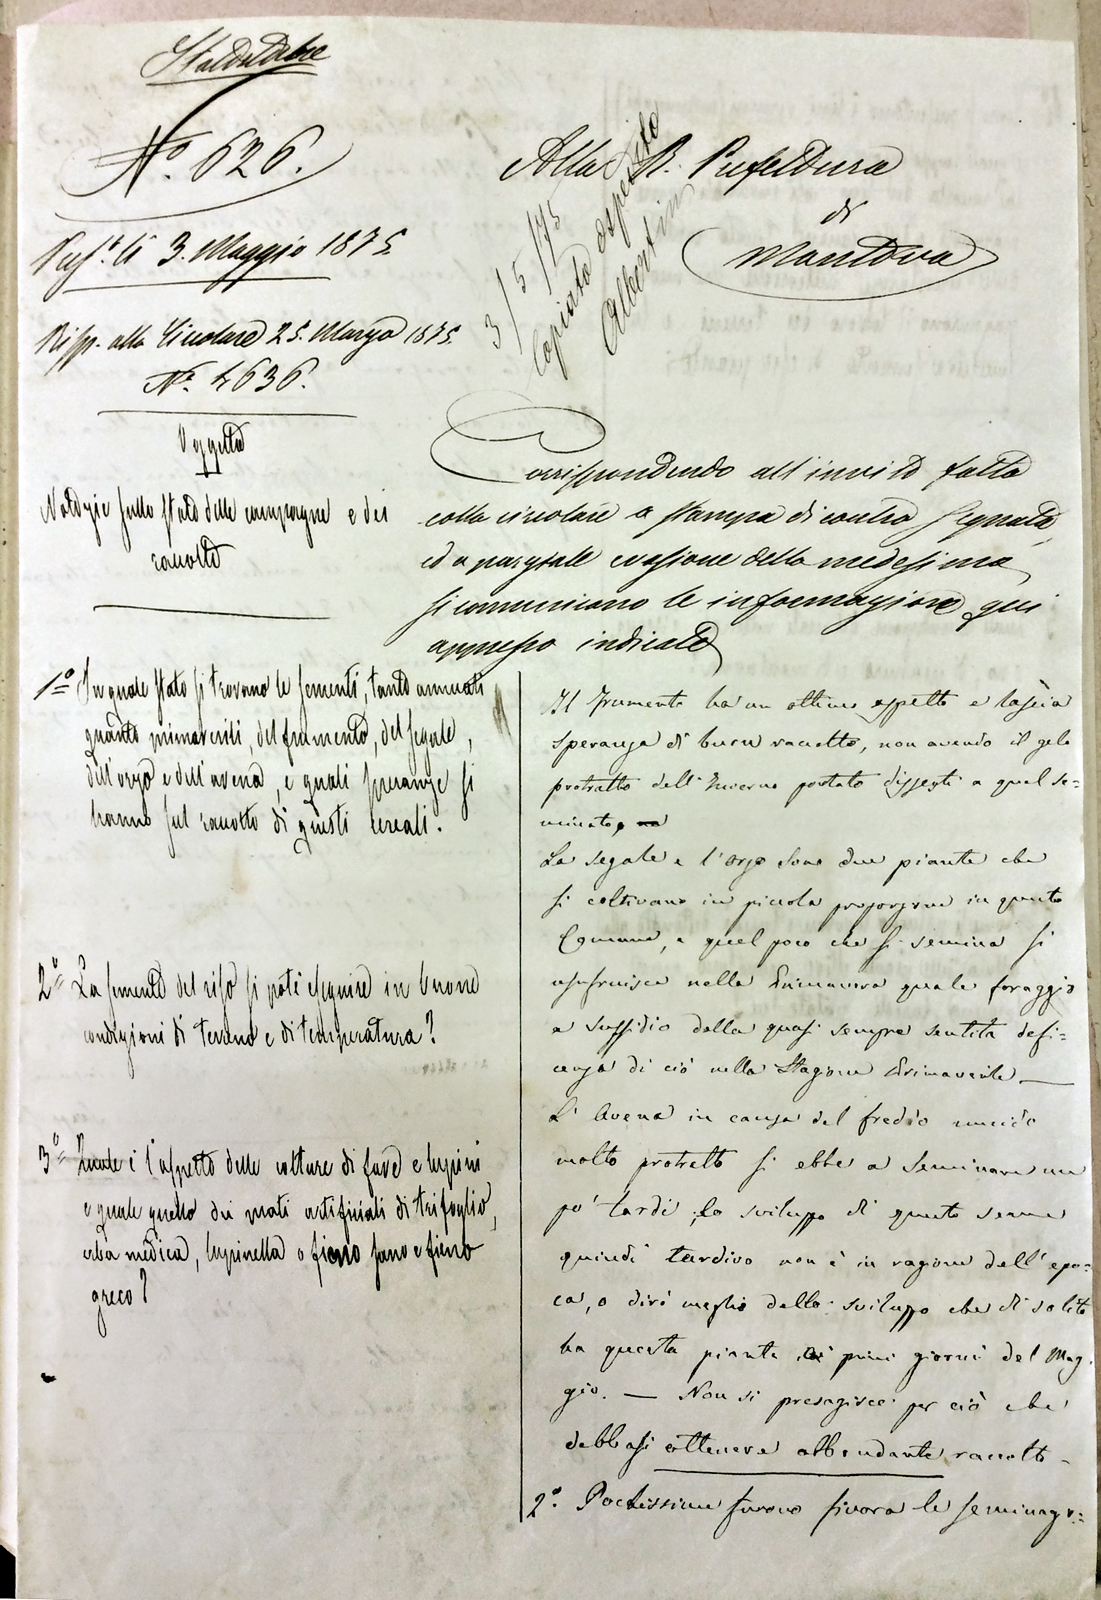 N.° 626.
li 3. Maggio 1875
Risp. alla Circolare 25. Marzo 1875
N.° 4636.
Oggetto
Notizie sullo stato delle campagne e dei
raccolti
Alla R. Prefettura
di
Mantova
3/5/75
Copiato e spedito
Albertini
Corrispondendo all'invito fatto
colla circolare a stampa di contro segnata,
ed a parziale evasione della medesima
si comunicano le informazioni qui
appresso indicate
1° In quale stato si trovano le sementi, tanto annuali
quanto primaverili, del frumento, del segale,
dell'orzo e dell'avena, e quali speranze si
hanno sul raccolto di questi cereali.
2° La semente del riso si potè eseguire in buone
condizioni di terreno e di temperatura?
3° Quale è l'aspetto delle colture di fave e lupini
e quale quello dei prati artificiali di trifoglio,
erba medica, lupinella o fieno sano e fieno
greco?
Il Frumento ha un ottimo aspetto e lascia
speranza di buon raccolto, non avendo il gelo
protratto dell'Inverno portato dissesti a quel se=
minato,
La segale e l'orzo sono due piante che
si coltivano in piccola proporzione in questo
Comune, e quel poco che si semina si
usufruisce nella Primavera quale foraggio
a sussidio della quasi sempre sentita defi=
cenza di ciò nella Stagione Primaverile —
L'Avena in causa del freddo umido
molto protratto si ebbe a seminare un
po' tardi, lo sviluppo di questo seme
quindi tardivo non è in ragione dell'epo=
ca, o dirò meglio dello sviluppo che di solito
ha questa pianta nei primi giorni del Mag=
gio. — Non si presagisce per ciò che
debbasi ottenere abbondante raccolto.
2°. Pochissime furono finora le seminagi=